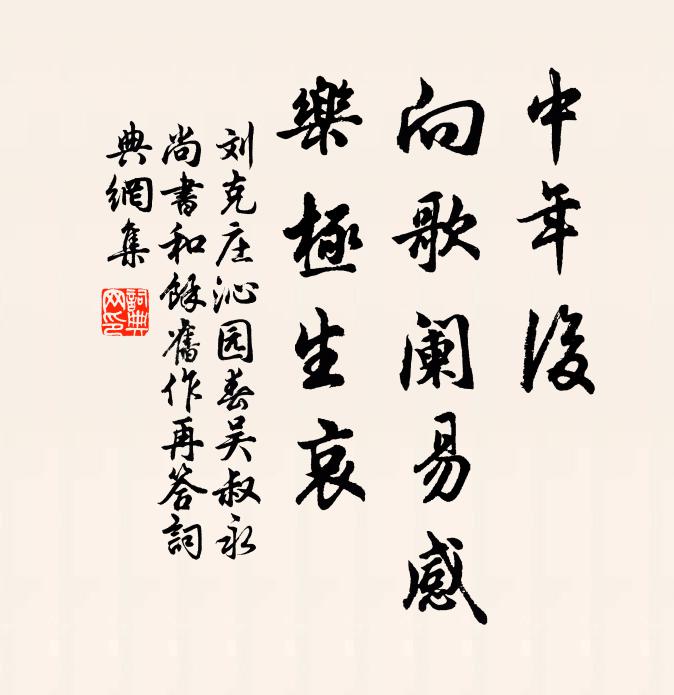 中年後
向歌阑易感
樂極生哀
刘克庄沁园春吴叔永
尚書和餘舊作再答詞
典網集
詞典
网印